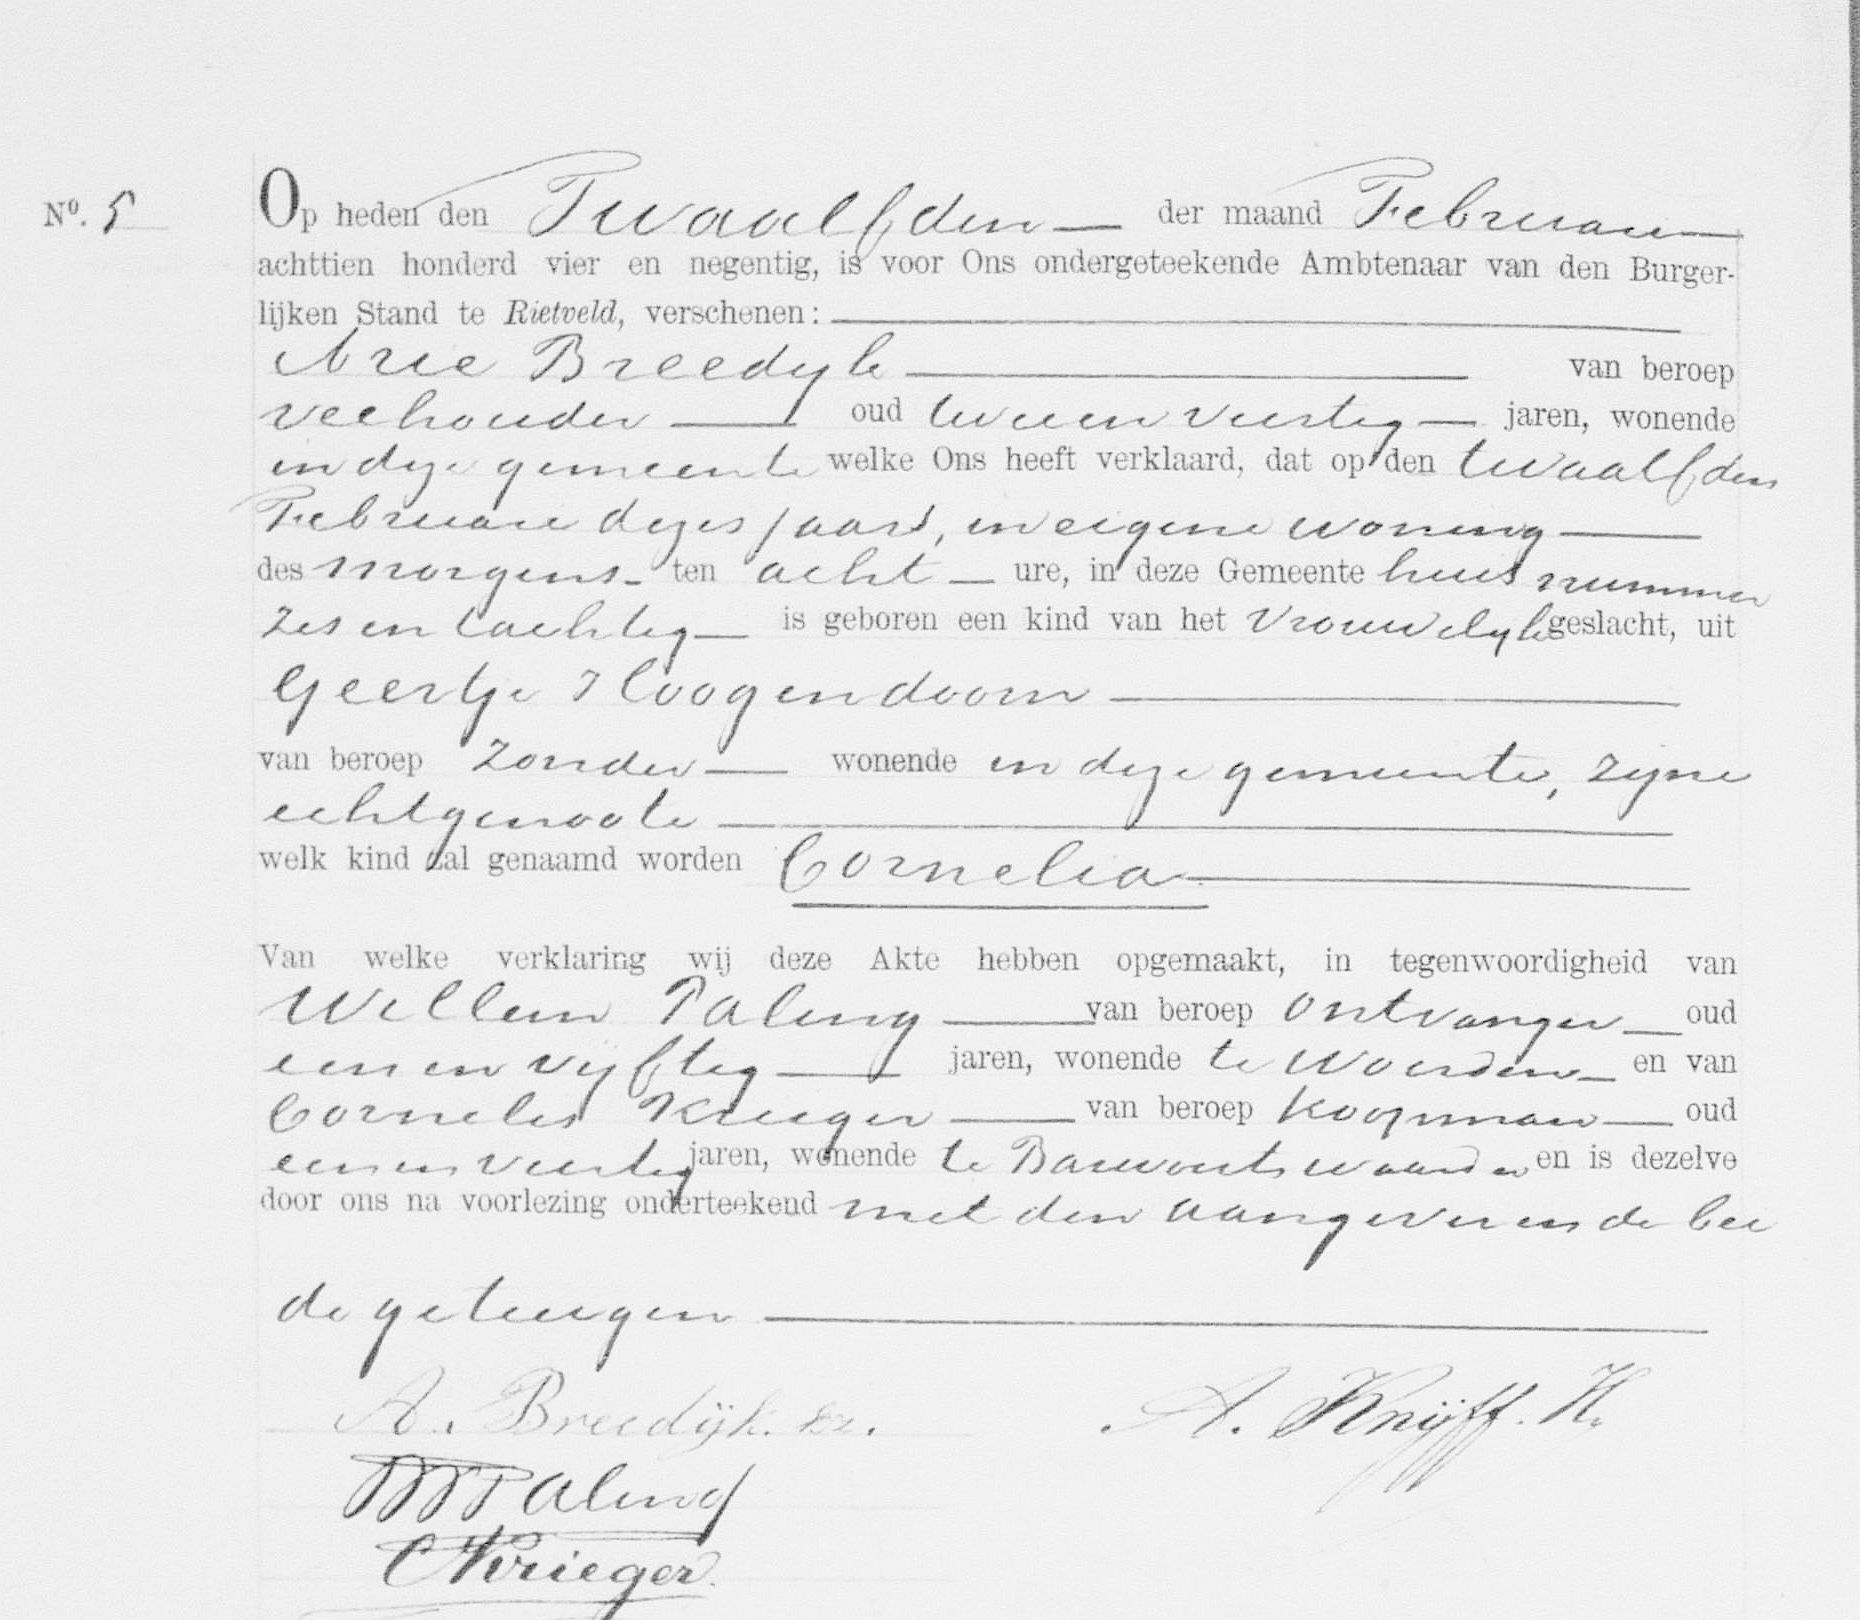 Nº. 5
Op heden den Twaalfden der maand Februari
achttien honderd vier en negentig, is voor Ons ondergeteekende Ambtenaar van den Burger-
lijken Stand te Rietveld, verschenen:
Arie Breedyk van beroep
veehouder oud tweeen veertig jaren, wonende
in deze gemeente welke Ons heeft verklaard, dat op den twaalfden
Februari dezes jaars, in eigene woning
des morgens ten acht ure, in deze Gemeente huis nummer
zes en tachtig is geboren een kind van het Vrouwelyk geslacht, uit
Geertje Hoogendoorn
van beroep zonder wonende in deze gemeente, zyne
echtgenoote
welk kind zal genaamd worden Cornelia
Van welke verklaring wij deze Akte hebben opgemaakt, in tegenwoordigheid van
Willem Paling van beroep Ontvanger oud
een en vijftig jaren, wonende te Woerden en van
Cornelis Krieger van beroep Koopman oud
een en veertig jaren, wonende te Barwoutswaarder en is dezelve
door ons na voorlezing onderteekend met den aangever en de bei
de getuigen
A. Breedijk. A. Knijff. H.
W Paling
C Krieger